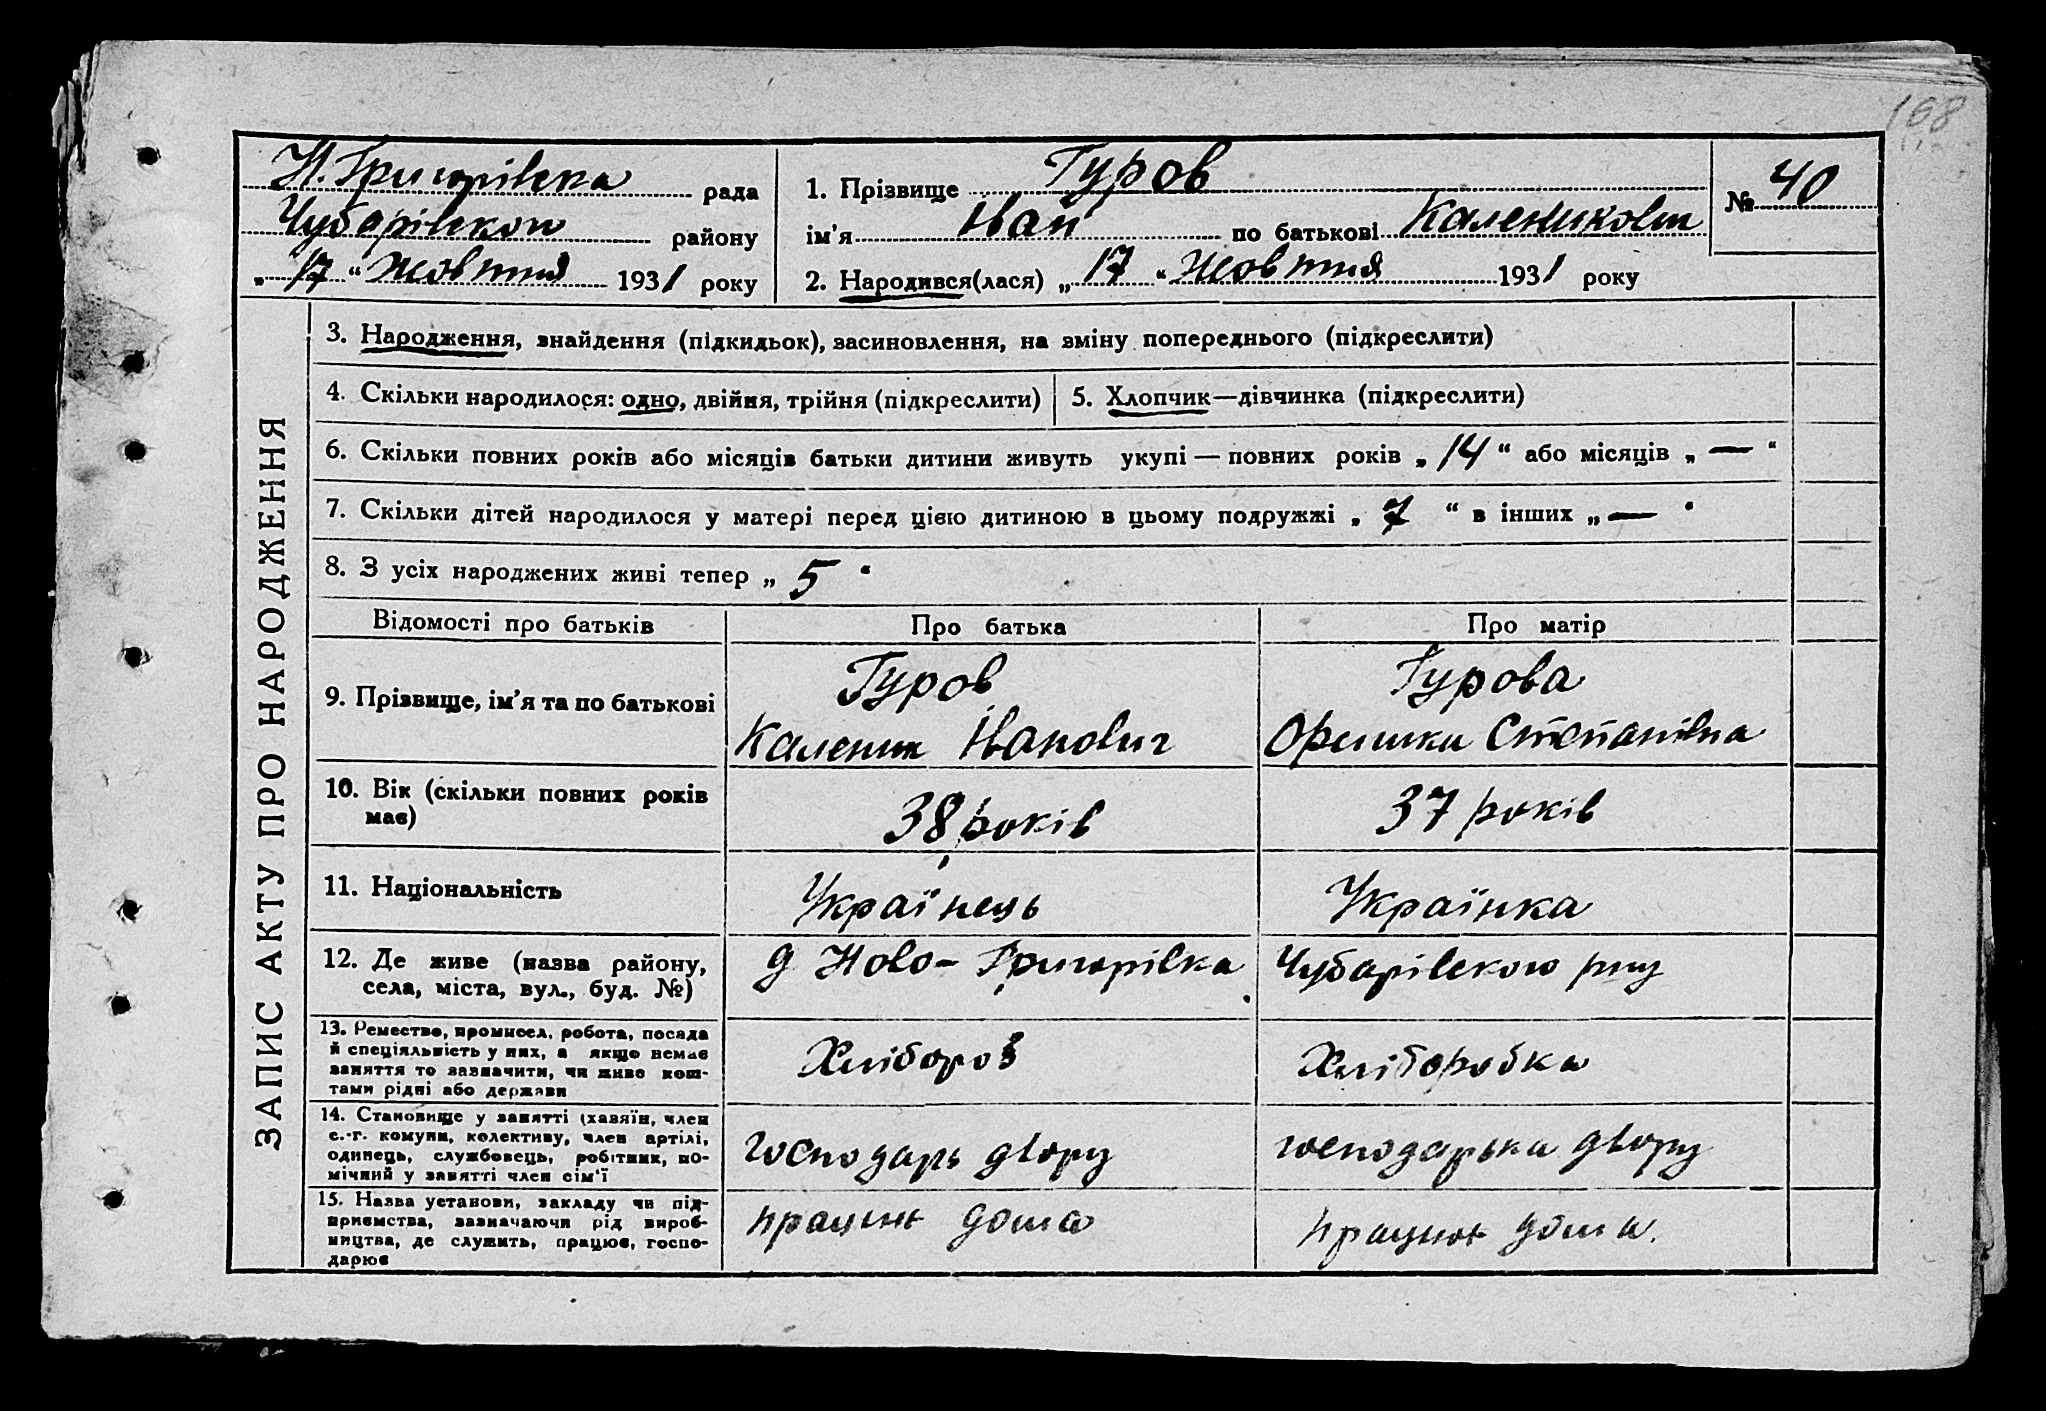 168
Н. Григорівка рада
Чубарівского району
„ 17 “ жовтня 1931 року
1. Прізвище Гуров
ім’я Іван по батькові Калеників
2. Народився(лася) „ 17 “ жовтня 1931 року
№ 40
ЗАПИС АКТУ ПРО НАРОДЖЕННЯ
3. Народження, знайдення (підкидьок), засиновлення, на зміну попереднього (підкреслити)
4. Скільки народилося: одно, двійня, трійня (підкреслити)
5. Хлопчик—дівчинка (підкреслити)
6. Скільки повних років або місяців батьки дитини живуть укупі — повних років „ 14 “ або місяців „ — “
7. Скільки дітей народилося у матері перед цією дитиною в цьому подружжі „ 7 “ в інших „ — “
8. З усіх народжених живі тепер „ 5 “
Відомості про батьків Про батька Про матір
9. Прізвище, ім’я та по батькові
Гуров
Каленик Іванович
Гурова
Оришка Степанівна
10. Вік (скільки повних років
має)
38 років
37 років
11. Національність
Українець
Українка
12. Де живе (назва району,
села, міста, вул., буд. №)
д Ново-Григорівка
Чубарівского рну
13. Ремество, промисел, робота, посада
й спеціяльність у них, а якщо немає
заняття то зазначити, чи живе кош-
тами рідні або держави
Хлібороб
Хліборобка
14. Становище у занятті (хазяїн, член
с.-г. комуни, колективу, член артілі,
одинець, службовець, робітник, по-
мічний у занятті член сім‘ї
господарь двору
господарька двору
15. Назва установи, закладу чи під-
приємства, зазначаючи рід вироб-
ництва, де служить, працює, госпо-
дарює
працює дома
працює дома.